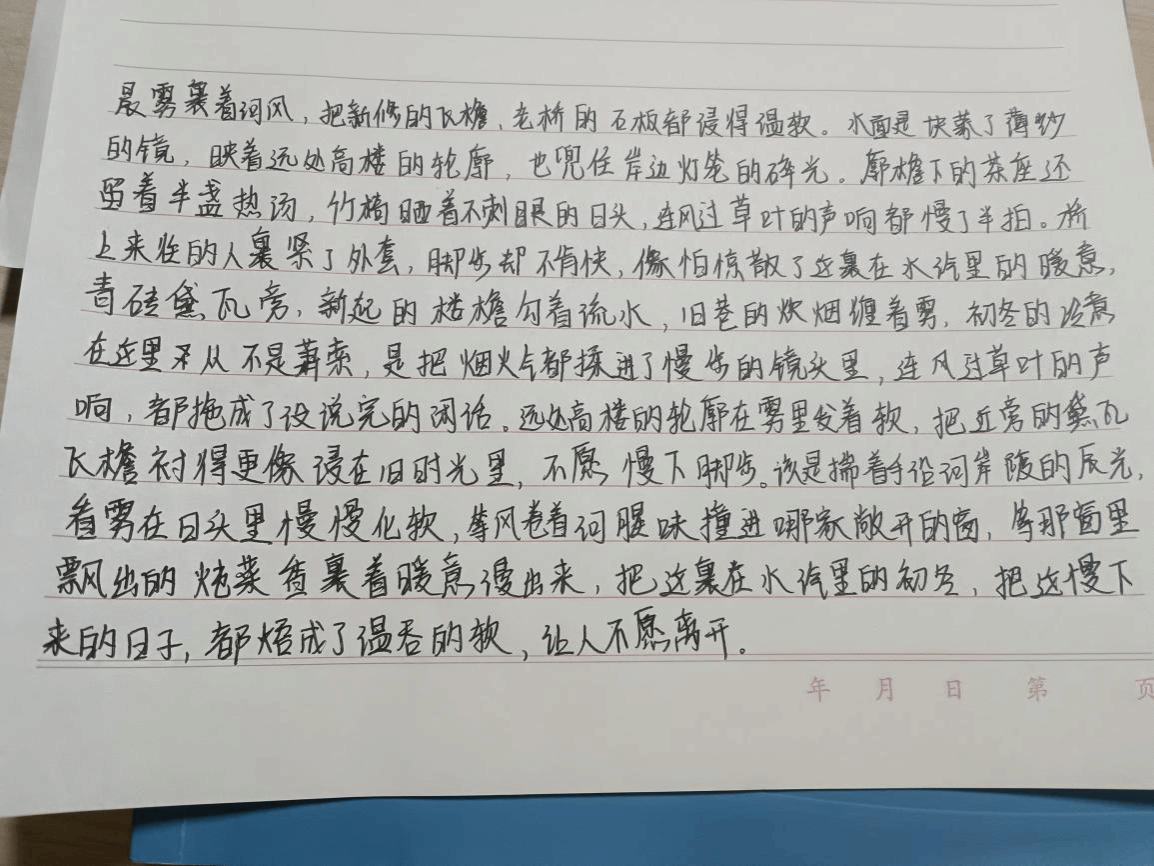 晨雾裹着河风，把新修的飞檐、老桥的石板都浸得温软。水面是块蒙了薄纱
的镜，映着远处高楼的轮廓，也兜住岸边灯笼的碎光。廓檐下的茶座还
留着半盏热汤，竹椅晒着不刺眼的日头，连风过草叶的声响都慢了半拍。桥
上来往的人裹紧了外套，脚步却不肯快，像怕惊散了这裹在水汽里的暖意，
青砖黛瓦旁，新起的楼檐勾着流水，旧巷的炊烟缠着雾，初冬的冷意
在这里从不是萧索，是把烟火气都揉进了慢步的镜头里，连风过草叶的声
响，都拖成了没说完的闲话。远处高楼的轮廓在雾里发着软，把近旁的黛瓦
飞檐衬得更像浸在旧时光里，不愿慢下脚步。该是揣着手沿河岸的辰光，
看雾在日头里慢慢化软，等风卷着河腥味撞进哪家敞开的窗，等那窗里
飘出的炖菜香裹着暖意漫出来，把这裹在水汽里的初冬，把这慢下
来的日子，都焐成了温吞的软，让人不愿离开。
年 月 日 第 页